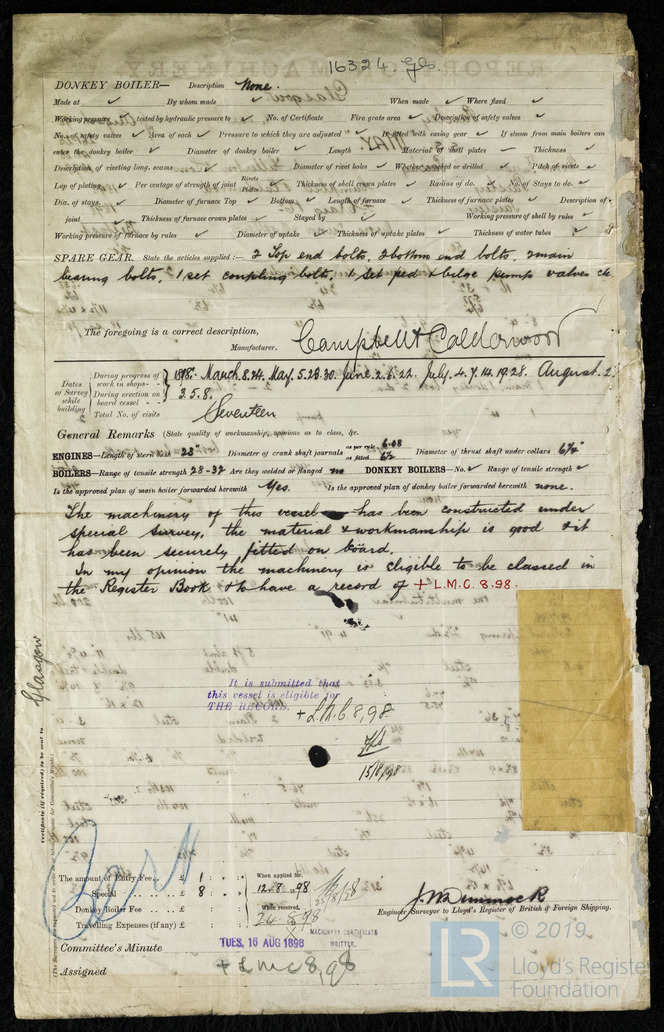 16324. Gls.
DONKEY BOILER— Description None.
Made at ✓ By whom made ✓ When made ✓ Where fixed ✓
Working pressure ✓ tested by hydraulic pressure to ✓ No. of Certificate Fire grate area ✓ Description of safety valves ✓
No. of safety valves ✓ Area of each ✓ Pressure to which they are adjusted ✓ If fitted with easing gear ✓ If steam from main boilers can
enter the donkey boiler ✓ Diameter of donkey boiler ✓ Length Material of shell plates ✓ Thickness ✓
Description of riveting long. seams ✓ Diameter of rivet holes ✓ Whether punched or drilled ✓ Pitch of rivets ✓
Lap of plating ✓ Per centage of strength of joint Rivets Thickness of shell crown plates ✓ Radius of do. ✓ No. of Stays to do. ✓
Dia. of stays. ✓ Diameter of furnace Top ✓ Bottom ✓ Length of furnace ✓ Thickness of furnace plates ✓ Description of
joint ✓ Thickness of furnace crown plates ✓ Stayed by ✓ Working pressure of shell by rules ✓
Working pressure of furnace by rules ✓ Diameter of uptake ✓ Thickness of uptake plates ✓ Thickness of water tubes ✓
SPARE GEAR. State the articles supplied:— 2 Top end bolts, 2 bottom end bolts, 2 main
bearing bolts, 1 set coupling bolts, 1 set feed & bilge pump valves &c
The foregoing is a correct description,
Manufacturer. Campbell & Calderwood
Dates of Survey while building
During progress of work in shops-- 1898. March. 8. 24. May. 5. 23. 30. June. 2. 8. 22. July. 4. 7. 14. 19. 28. August. 2.
During erection on board vessel-- 3. 5. 8.
Total No. of visits Seventeen
General Remarks (State quality of workmanship, opinions as to class, &c.
ENGINES—Length of stern bush 28" Diameter of crank shaft journals as per rule 6.08 as fitted 6½ Diameter of thrust shaft under collars 6¼"
BOILERS—Range of tensile strength 28-32 Are they welded or flanged no DONKEY BOILERS—No. ✓ Range of tensile strength ✓
Is the approved plan of main boiler forwarded herewith Yes. Is the approved plan of donkey boiler forwarded herewith none.
The machinery of this vessel has been constructed under
special survey, the material & workmanship is good & it
has been securely fitted on board.
In my opinion the machinery is eligible to be classed in
the Register Book & to have a record of + L.M.C. 8.98.
It is submitted that
this vessel is eligible for
THE RECORD. + L.M.C. 8,98
15/8/98
Glasgow
Certificate (if required) to be sent to
The amount of Entry Fee.. £ 1 : : When applied for,
Special .. .. £ 8 : : 12.8.1898
Donkey Boiler Fee .. .. £ : : When received,
Travelling Expenses (if any) £ : : 24.8.98
J. W. Dimmock
Engineer Surveyor to Lloyd's Register of British & Foreign Shipping.
MACHINERY CERTIFICATE
WRITTEN.
Committee's Minute TUES. 16 AUG 1898
Assigned + L M C 8,98
LR
© 2019
Lloyd's Register
Foundation